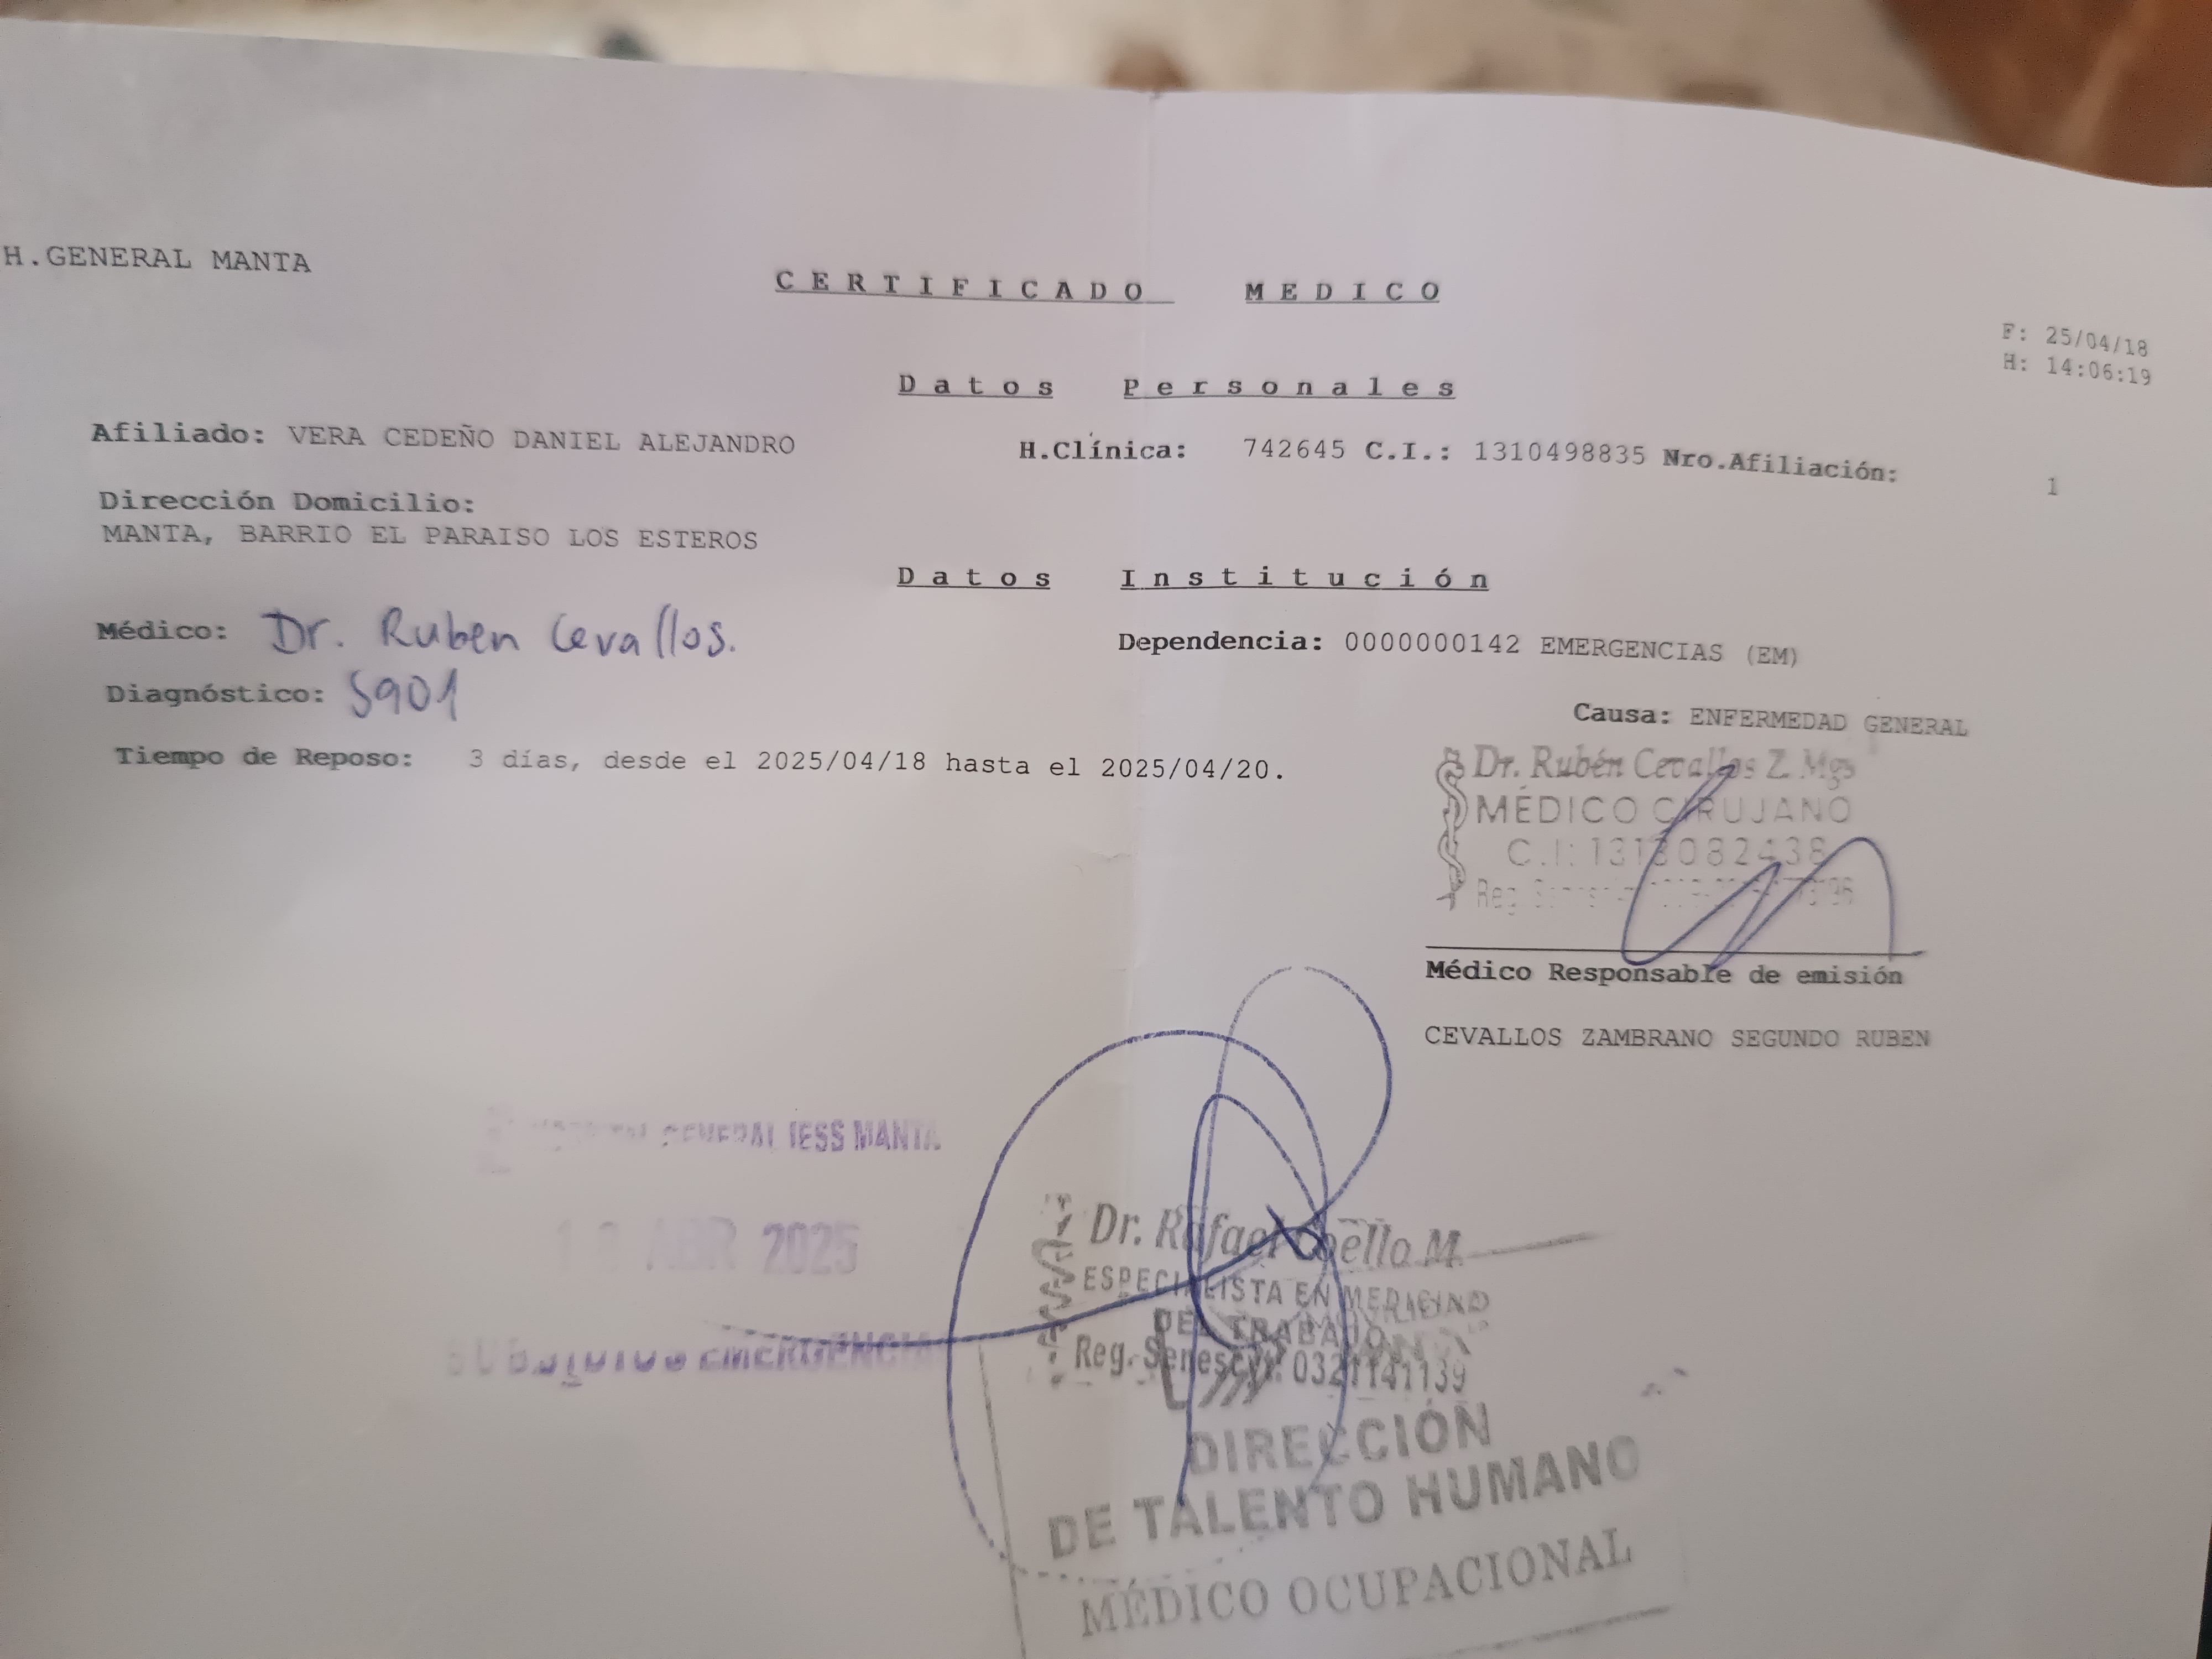 H.GENERAL MANTA
CERTIFICADO MEDICO
F: 25/04/18
H: 14:06:19
Datos Personales
Afiliado: VERA CEDEÑO DANIEL ALEJANDRO H.Clínica: 742645 C.I.: 1310498835 Nro.Afiliación: 1
Dirección Domicilio:
MANTA, BARRIO EL PARAISO LOS ESTEROS
Datos Institución
Médico: Dr. Ruben Cevallos. Dependencia: 0000000142 EMERGENCIAS (EM)
Diagnóstico: S901
Causa: ENFERMEDAD GENERAL
Tiempo de Reposo: 3 días, desde el 2025/04/18 hasta el 2025/04/20.
Dr. Rubén Cevallos Z. Mgs
MÉDICO CIRUJANO
C.I: 1313082438
Reg.
Médico Responsable de emisión
CEVALLOS ZAMBRANO SEGUNDO RUBEN
GENERAL IESS MANTA
ABR 2025
EMERGENCIA
Dr. Rafael M.
ESPECIALISTA EN
DEL TRABAJO
Reg. Senescyt: 0321141139
DIRECCIÓN
DE TALENTO HUMANO
MÉDICO OCUPACIONAL